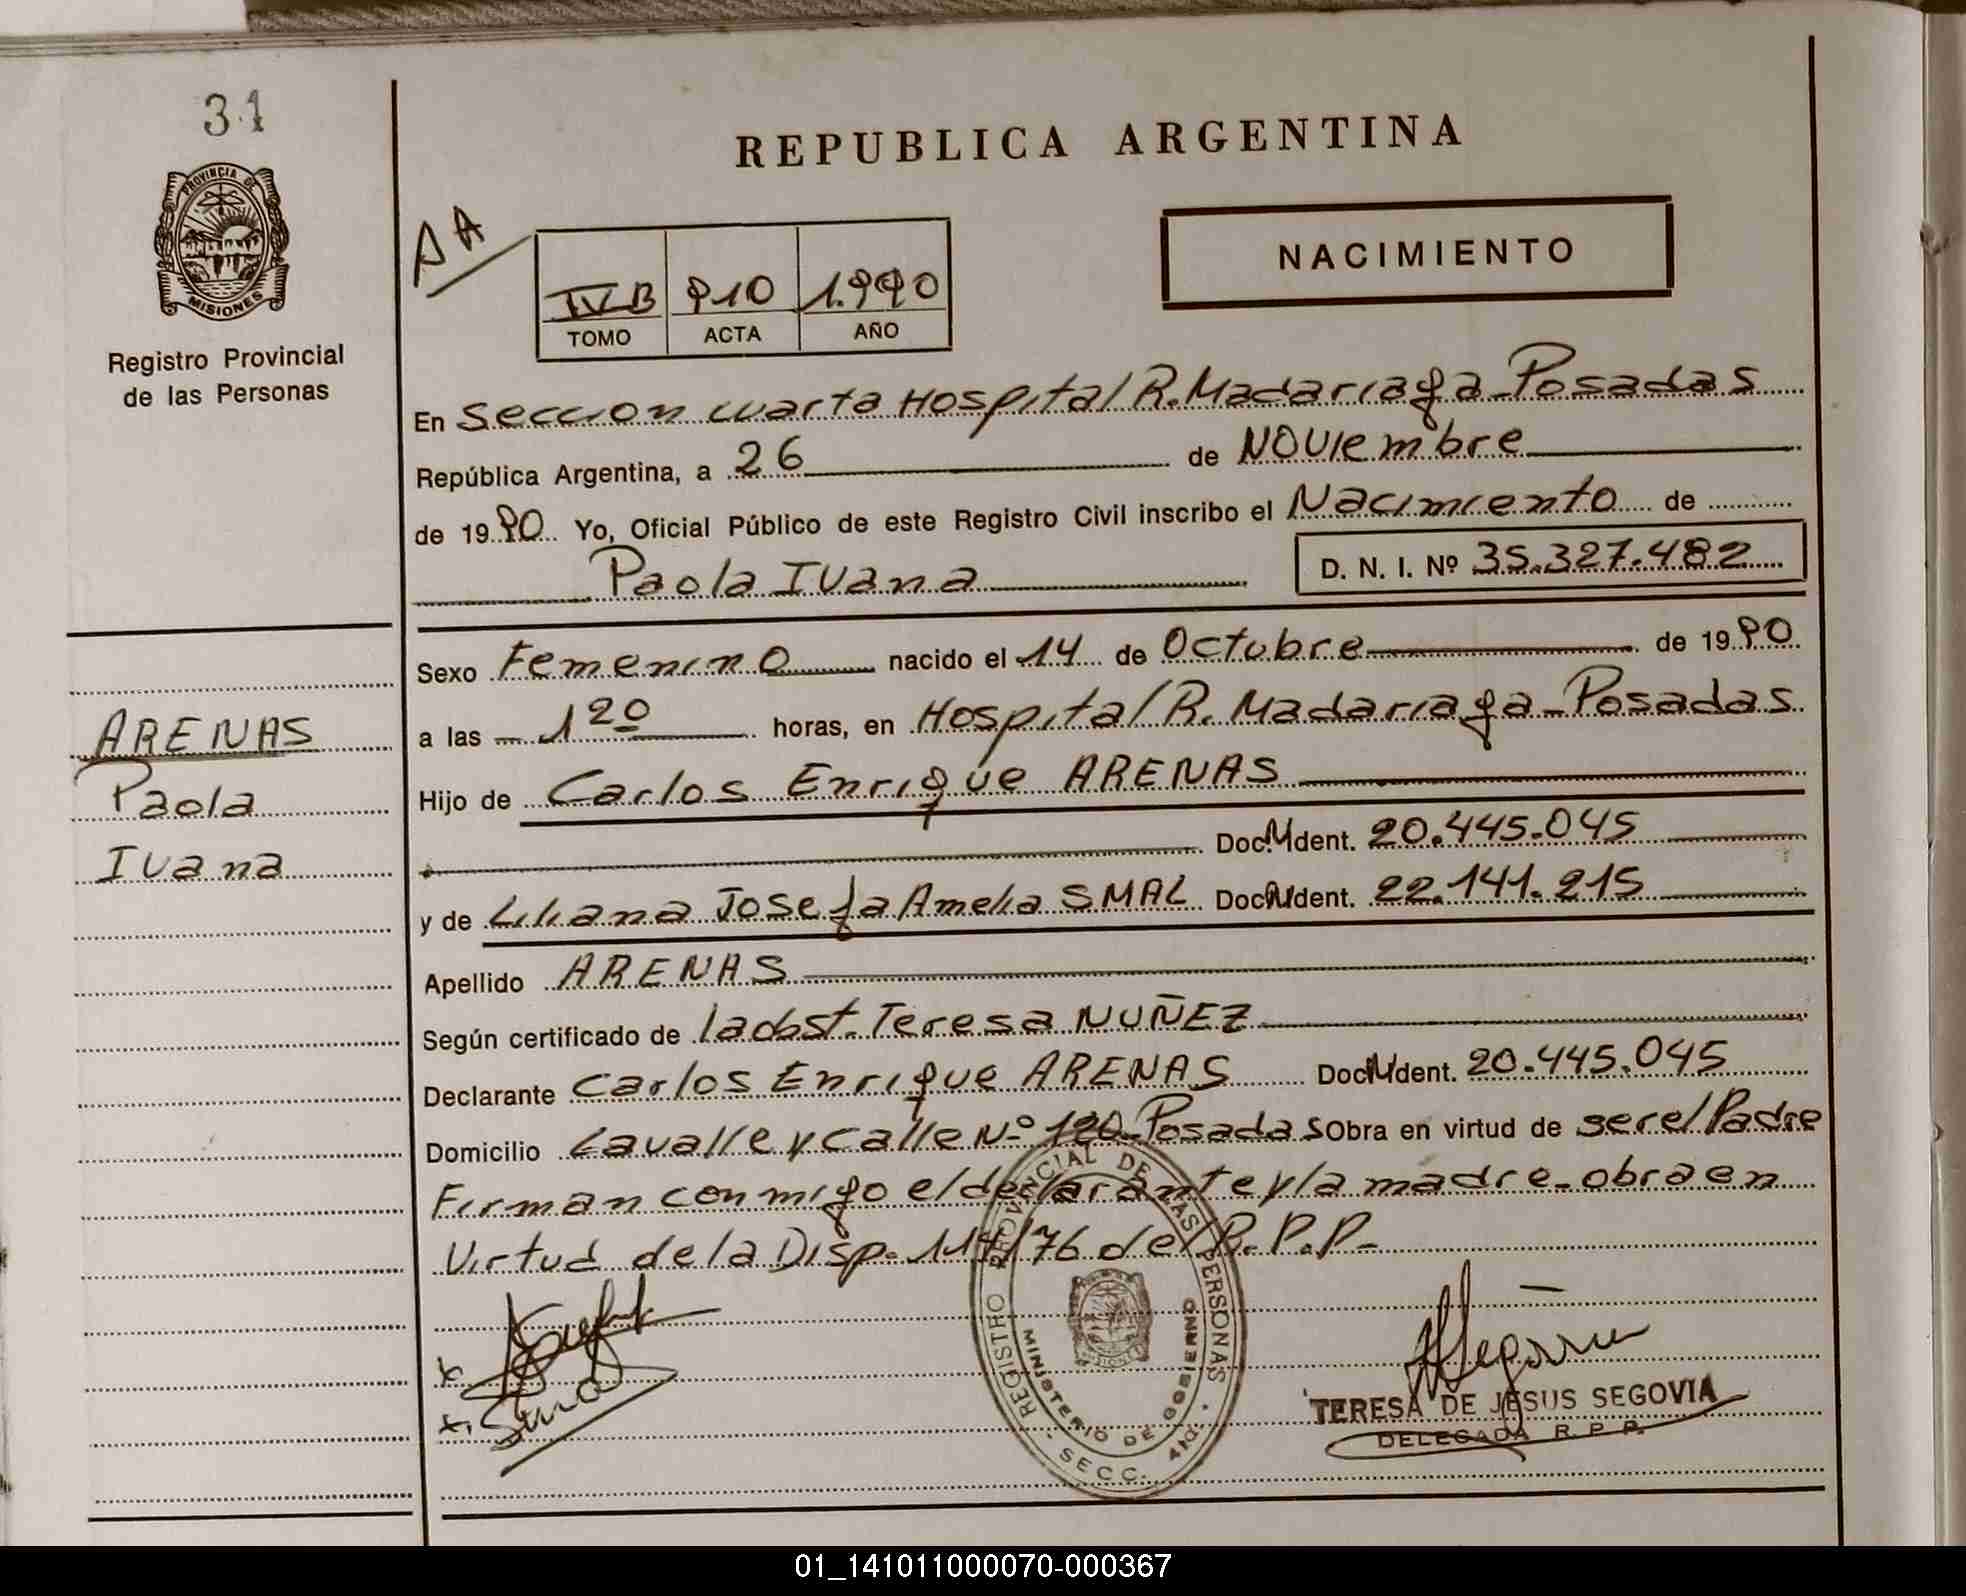 31
PROVINCIA DE
MISIONES
Registro Provincial
de las Personas
REPUBLICA ARGENTINA
AA
NACIMIENTO
IV B 910 1.990
TOMO ACTA AÑO
En Sección cuarta Hospital R. Madariaga - Posadas
República Argentina, a 26 de Noviembre
de 1990 Yo, Oficial Público de este Registro Civil inscribo el Nacimiento de
Paola Ivana
D. N. I. Nº 35.327.482
Sexo Femenino nacido el 14 de Octubre de 1990
a las 1 20 horas, en Hospital R. Madariaga - Posadas
Hijo de Carlos Enrique ARENAS
Doc. Ident. 20.445.045
y de Liliana Josefa Amelia SMAL Doc. Ident. 22.141.215
Apellido ARENAS
Según certificado de la obst. Teresa NUÑEZ
Declarante Carlos Enrique ARENAS Doc. Ident. 20.445.045
Domicilio Lavalle y Calle Nº 120 - Posadas Obra en virtud de ser el Padre
Firman conmigo el declarante y la madre - obra en
Virtud de la Disp. 114/76 del R.P.P.-
ARENAS
Paola
Ivana
REGISTRO PROVINCIAL DE LAS PERSONAS
MINISTERIO DE GOBIERNO
MISIONES
SECC. 4ta.
TERESA DE JESUS SEGOVIA
DELEGADA R. P. P.
01_141011000070-000367